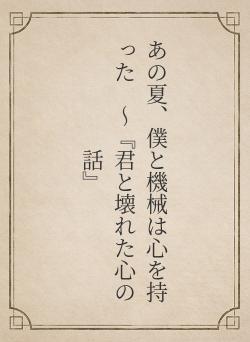 あの夏、僕と機械は心を持
った　～『君と壊れた心の
話』